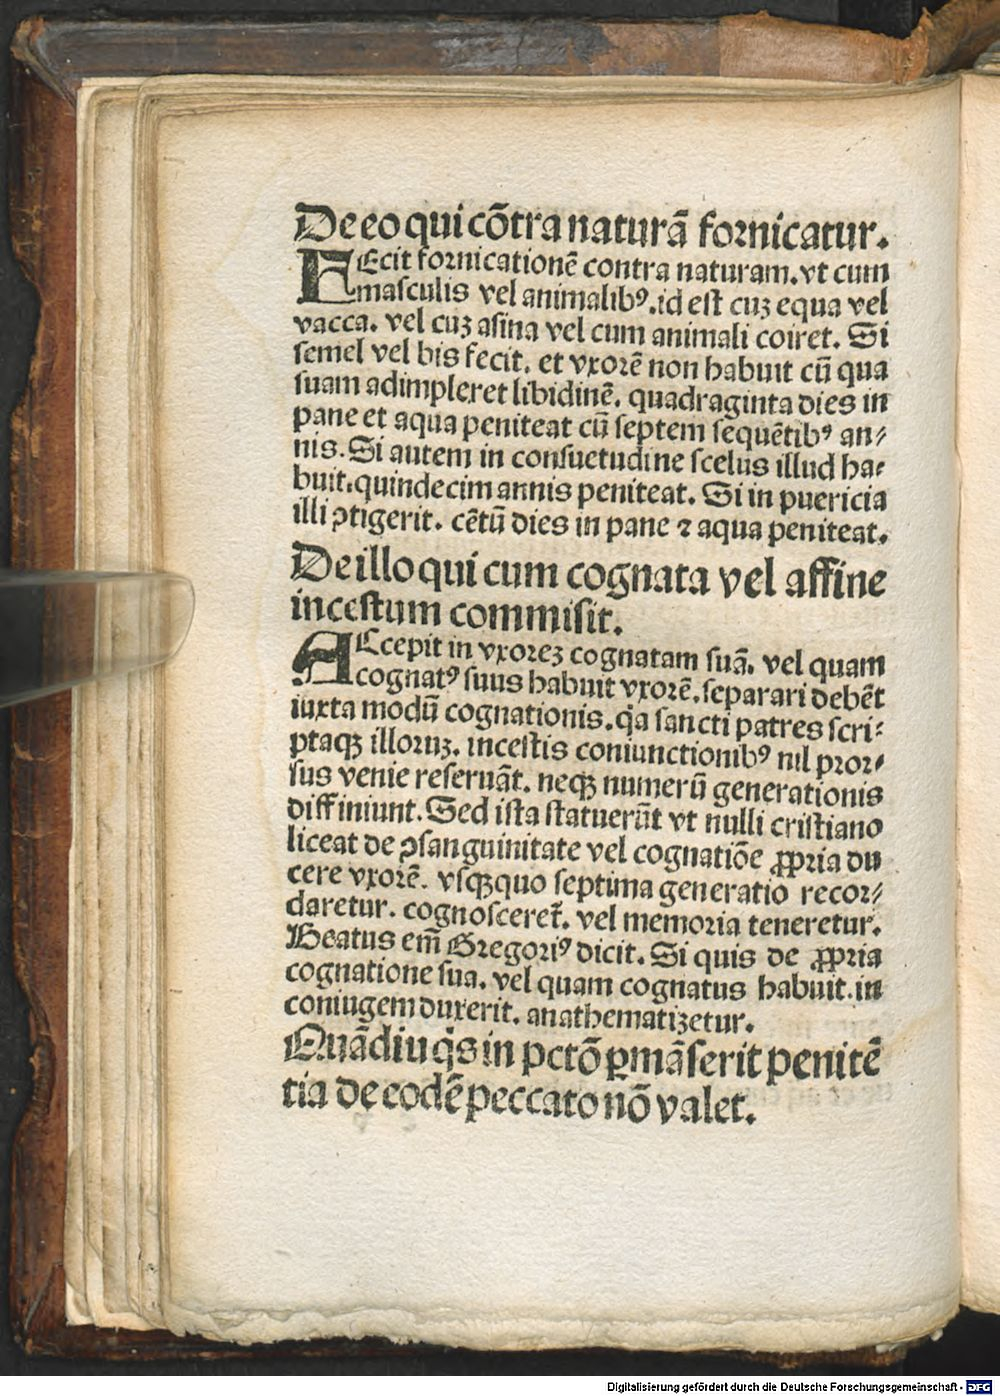 De eo qui cōtra naturā fornicatur.
FEcit fornicationē contra naturam. vt cum
masculis vel animalibꝰ. id est cuꝫ equa vel
vacca. vel cuꝫ asina vel cum animali coiret. Si
semel vel bis fecit. et vxorē non habuit cū qua
suam adimpleret libidinē. quadraginta dies in
pane et aqua peniteat cū septem sequētibꝰ an⸗
nis. Si autem in consuetudine scelus illud ha⸗
buit. quindecim annis peniteat. Si in puericia
illi ꝯtigerit. cētū dies in pane ⁊ aqua peniteat.
De illo qui cum cognata vel affine
incestum commisit.
ACcepit in vxoreꝫ cognatam suā. vel quam
cognatꝰ suus habuit vxorē. separari debēt
iuxta modū cognationis. qa sancti patres scri⸗
ptaqꝫ illoruꝫ. incestis coniunctionibꝰ nil pror⸗
sus venie reseruāt. neqꝫ numerū generationis
diffiniunt. Sed ista statuerūt vt nulli cristiano
liceat de ꝯsanguinitate vel cognatiōe ꝓpria du
cere vxorē. vsqꝫquo septima generatio recor⸗
daretur. cognosceret̄. vel memoria teneretur.
Beatus em̄ Gregoriꝰ dicit. Si quis de ꝓpria
cognatione sua. vel quam cognatus habuit. in
coniugem duxerit. anathematizetur.
Quādiu qͥs in pctō ꝑmāserit penitē
tia de eodē peccato nō valet.
Digitalisierung gefördert durch die Deutsche Forschungsgemeinschaft - DFG